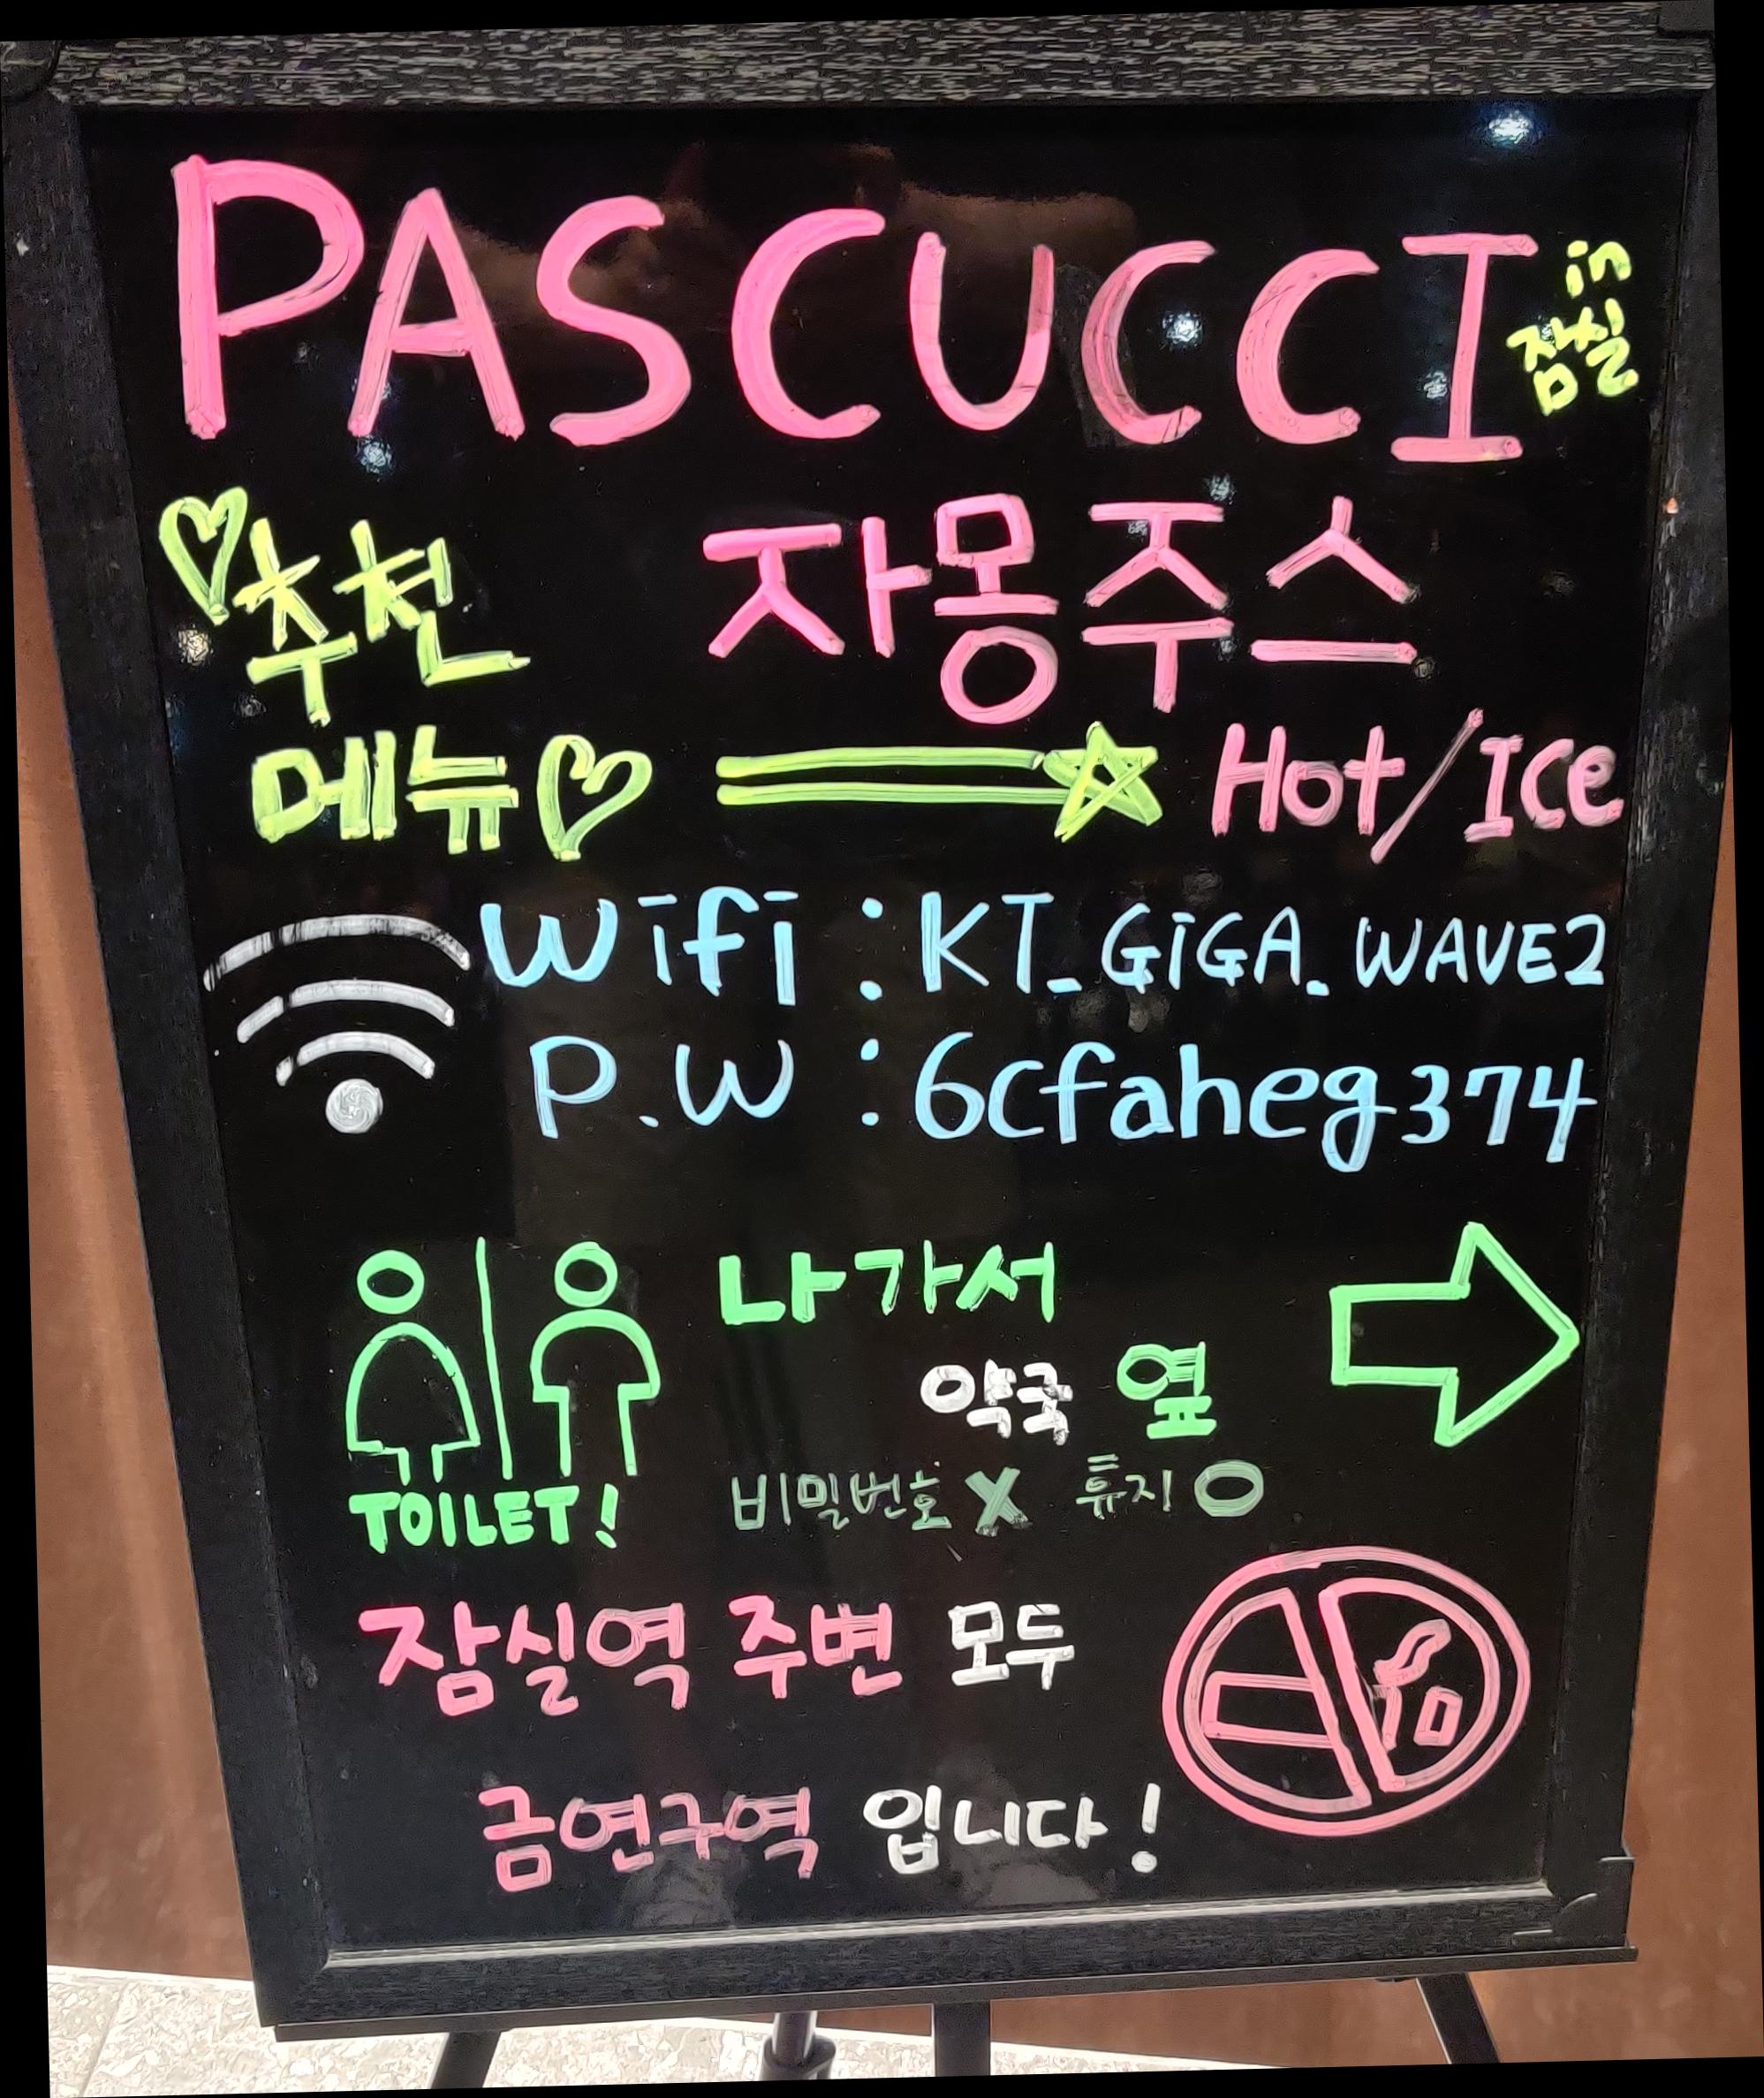 PASCUCCI in 잠실
♡추천 메뉴♡
자몽주스
Hot/ICe
Wifi : KT_GiGA_WAVE2
P.W : 6cfaheg374
나가서
약국 옆
비밀번호 X 휴지 O
TOILET!
잠실역 주변 모두
금연구역 입니다!